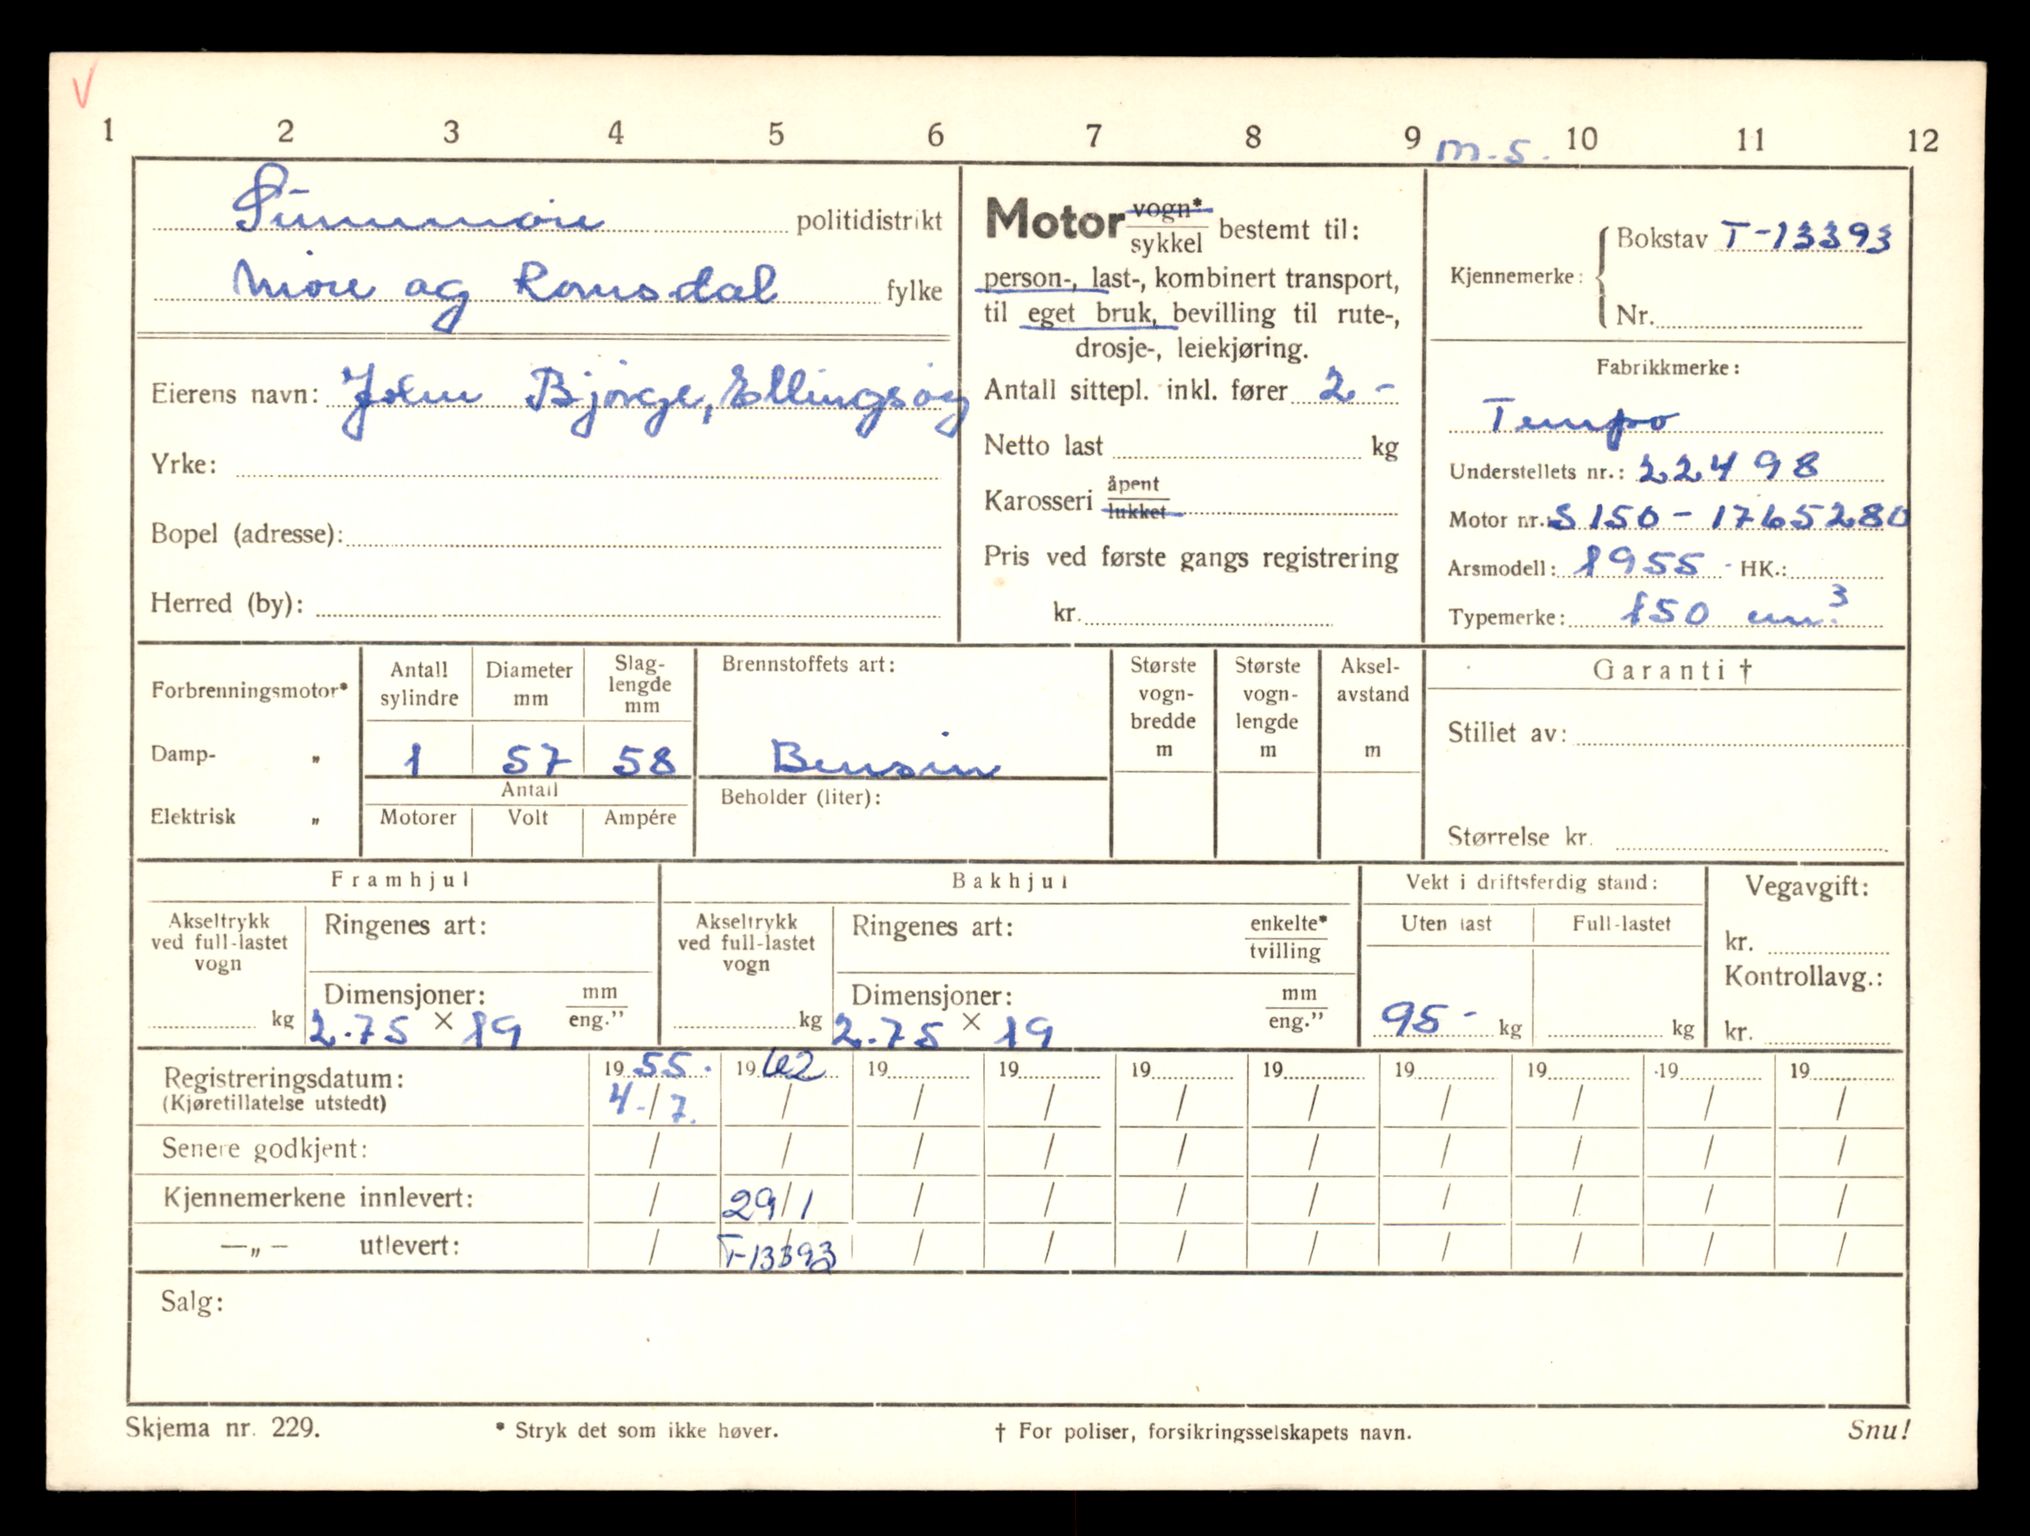 V
1 2 3 4 5 6 7 8 9 10 11 12
m.s.
Sunnmøre politidistrikt
Møre og Romsdal fylke
Eierens navn: John Bjørge, Ellingsøy
Yrke:
Bopel (adresse):
Herred (by):
Motor vogn* sykkel bestemt til:
person-, last-, kombinert transport,
til eget bruk, bevilling til rute-,
drosje-, leiekjøring.
Antall sittepl. inkl. fører 2 -
Netto last kg
Karosseri åpent lukket
Pris ved første gangs registrering
kr.
Kjennemerke: Bokstav T-13393
Nr.
Fabrikkmerke:
Tempo
Understellets nr.: 22498
Motor nr.: S150-1765280
Arsmodell: 1955 HK.:
Typemerke: 150 cm.3
Forbrenningsmotor*
Damp- „
Elektrisk „
Antall sylindre Diameter mm Slag-lengde mm
1 57 58
Antall
Motorer Volt Ampére
Brennstoffets art:
Bensin
Beholder (liter):
Største vogn-bredde m
Største vogn-lengde m
Aksel-avstand m
Garanti †
Stillet av:
Størrelse kr.
Framhjul
Akseltrykk ved full-lastet vogn kg
Ringenes art:
Dimensjoner: mm eng.”
2.75 × 19
Bakhjul
Akseltrykk ved full-lastet vogn kg
Ringenes art: enkelte* tvilling
Dimensjoner: mm eng.”
2.75 × 19
Vekt i driftsferdig stand:
Uten last Full-lastet
95 - kg kg
Vegavgift:
kr.
Kontrollavg.:
kr.
Registreringsdatum: 19 55. 19 62 19 19 19 19 19 19 19 19
(Kjøretillatelse utstedt) 4./7. / / / / / / / / /
Senere godkjent: / / / / / / / / / /
Kjennemerkene innlevert: / 29/1 / / / / / / / /
—„— utlevert: / T-13393 / / / / / / / /
Salg:
Skjema nr. 229. * Stryk det som ikke høver. † For poliser, forsikringsselskapets navn. Snu!